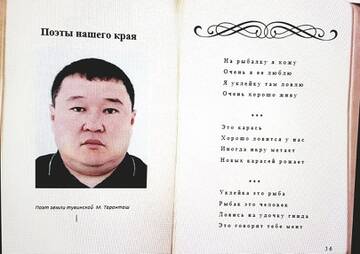 Поэты нашего края
Поэт земли тувинской М. Таранташ
На рыбалку я хожу
Очень я ее люблю
Я уклейку там ловлю
Очень хорошо живу
***
Это карась
Хорошо ловится у нас
Иногда икру метает
Новых карасей рожает
***
Уклейка это рыба
Рыбак это человек
Ловись на удочку гнида
Это говорит тебе мент
36